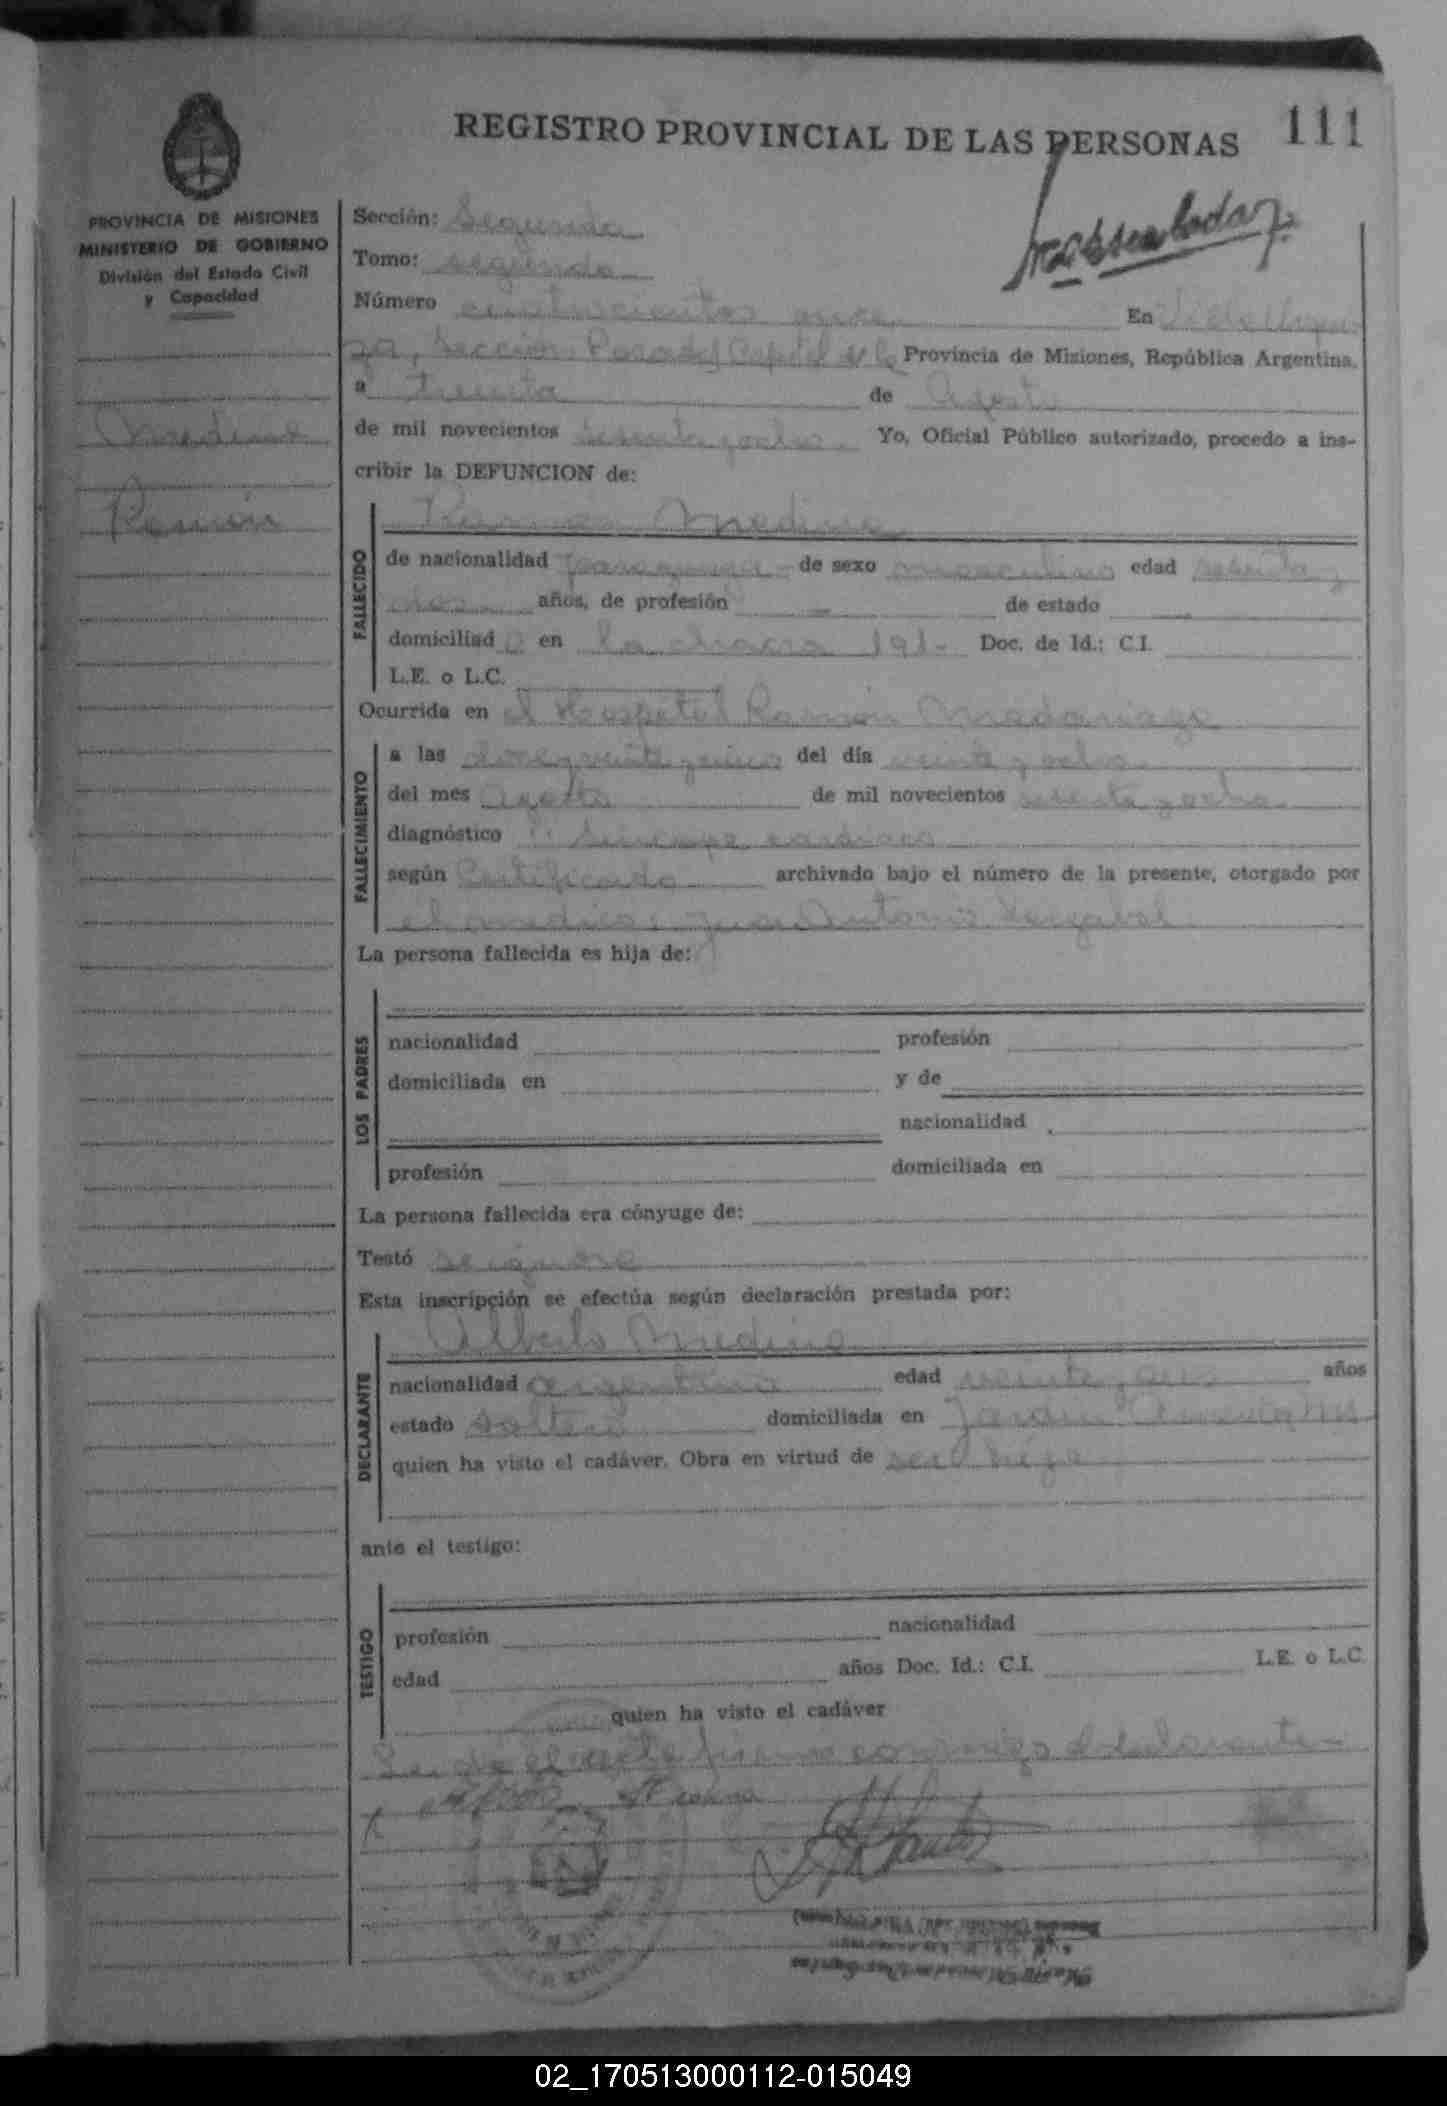 REGISTRO PROVINCIAL DE LAS PERSONAS 111
PROVINCIA DE MISIONES
MINISTERIO DE GOBIERNO
División del Estado Civil
y Capacidad
Medina
Ramón
Sección: Segunda
Tomo: segundo
Número cuatrocientos once En Villa Urqui-
za, Sección Posadas Capital de la Provincia de Misiones, República Argentina,
a treinta de Agosto
de mil novecientos sesenta y ocho. Yo, Oficial Público autorizado, procedo a ins-
cribir la DEFUNCION de:
Ramon Medina
FALLECIDO
de nacionalidad paraguaya - de sexo masculino edad sesenta y
dos años, de profesión — de estado —
domiciliad o en la chacra 191- Doc. de Id.: C.I.
L.E. o L.C.
Ocurrida en el Hospital Ramón Madariaga
FALLECIMIENTO
a las doce y veinte y cinco del día veinte y ocho
del mes Agosto de mil novecientos sesenta y ocho
diagnóstico sincope cardiaco
según Certificado archivado bajo el número de la presente, otorgado por
el medico: Juan Antonio
La persona fallecida es hija de:
LOS PADRES
nacionalidad profesión
domiciliada en y de
nacionalidad
profesión domiciliada en
La persona fallecida era cónyuge de:
Testó se ignora
Esta inscripción se efectúa según declaración prestada por:
Alberto Medina
DECLARANTE
nacionalidad argentina edad veinte y años
estado soltero domiciliada en Jardin
quien ha visto el cadáver. Obra en virtud de ser hijo
ante el testigo:
TESTIGO
profesión nacionalidad
edad años Doc. Id.: C.I. L.E. o L.C.
quien ha visto el cadáver
Leida el acta firma conmigo el declarante-
02_170513000112-015049